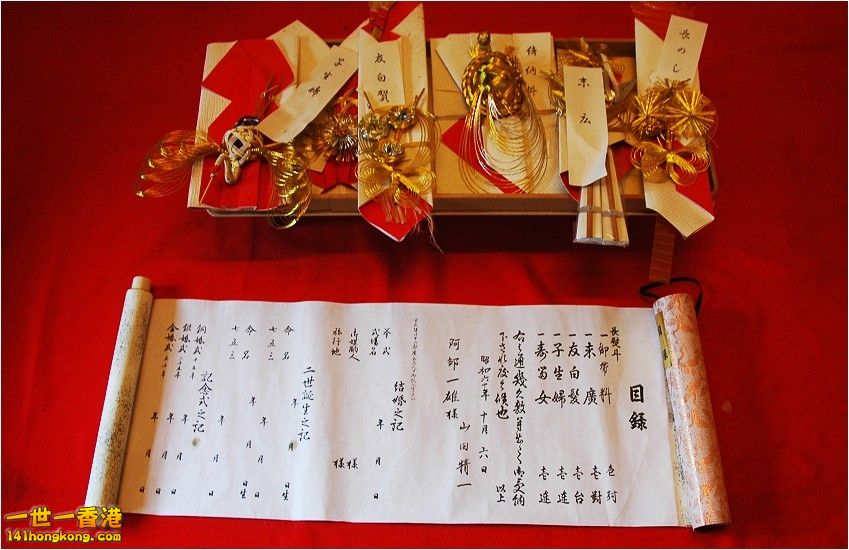 長のし
末広
結納料
友白賀
目録
長熨斗
一末廣 壱對
一友白髪 壱台
一子生婦 壱連
一寿留女 壱連
右之通幾久敷芽出たく御受納
下され度候也 以上
昭和六十年十月六日
山田精一
阿部一雄様
結婚之記
挙式 年 月 日
式場名
御媒酌人 様
旅行地 様
二世誕生之記
命名 年 月 日生
七五三
命名 年 月 日生
七五三
記念式之記
銅婚式 十五年 年 月 日
銀婚式 二十五年 年 月 日
金婚式 五十年 年 月 日
一世一香港
141hongkong.com